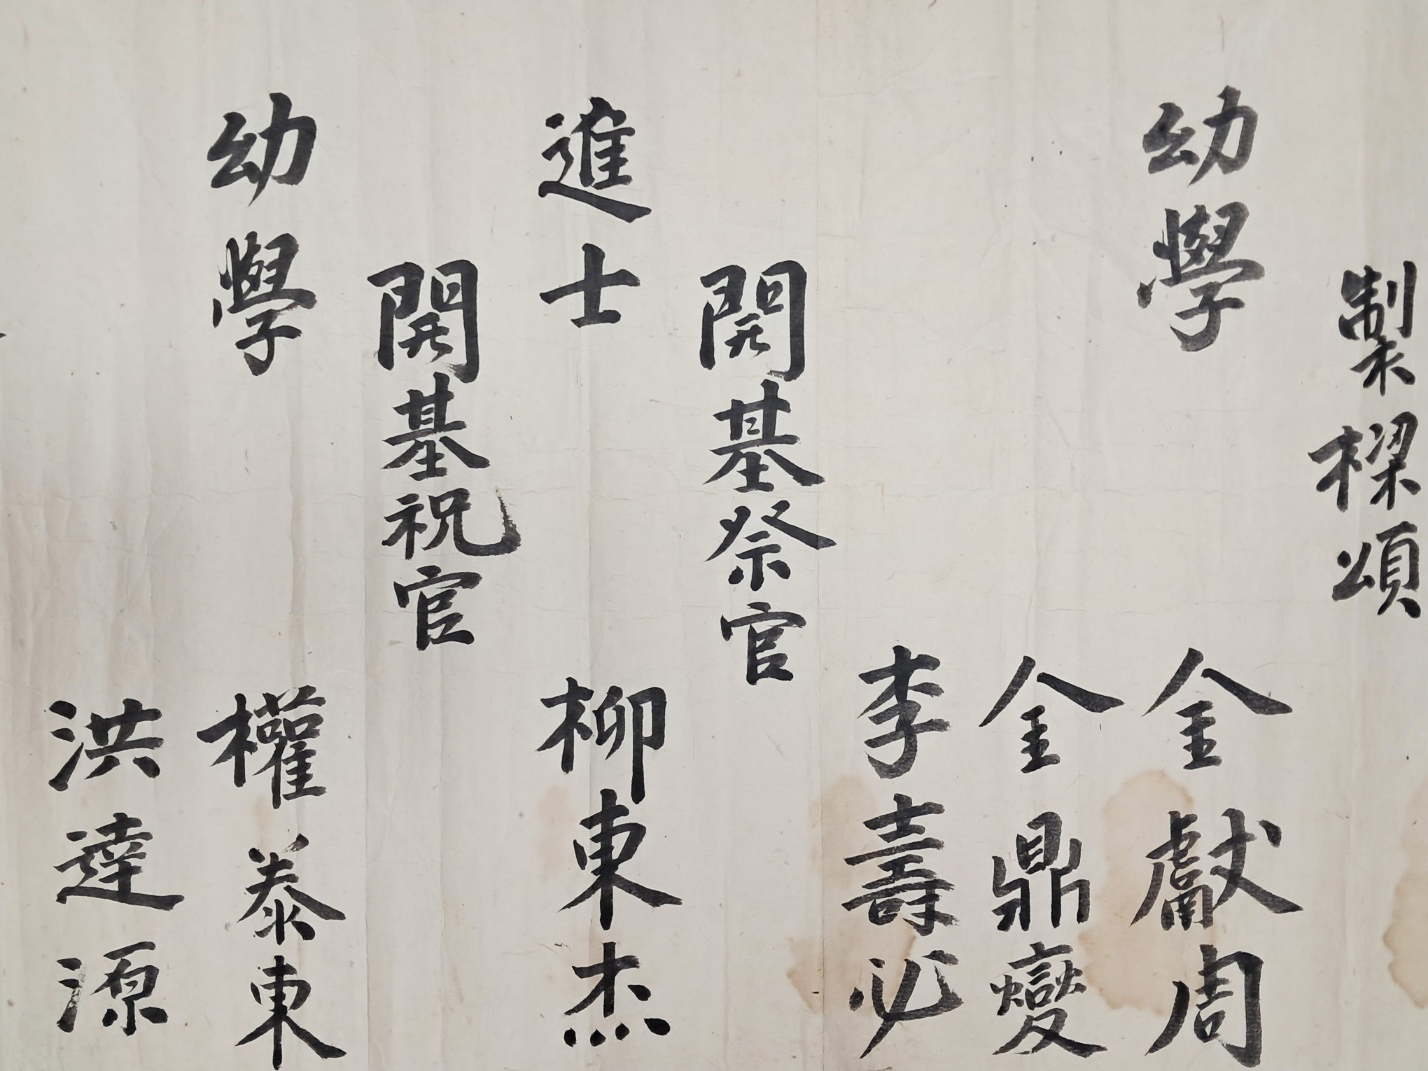 製樑頌
幼學 金獻周
金鼎燮
李壽弼
開基祭官
進士 柳東杰
開基祝官
幼學 權泰東
洪達源